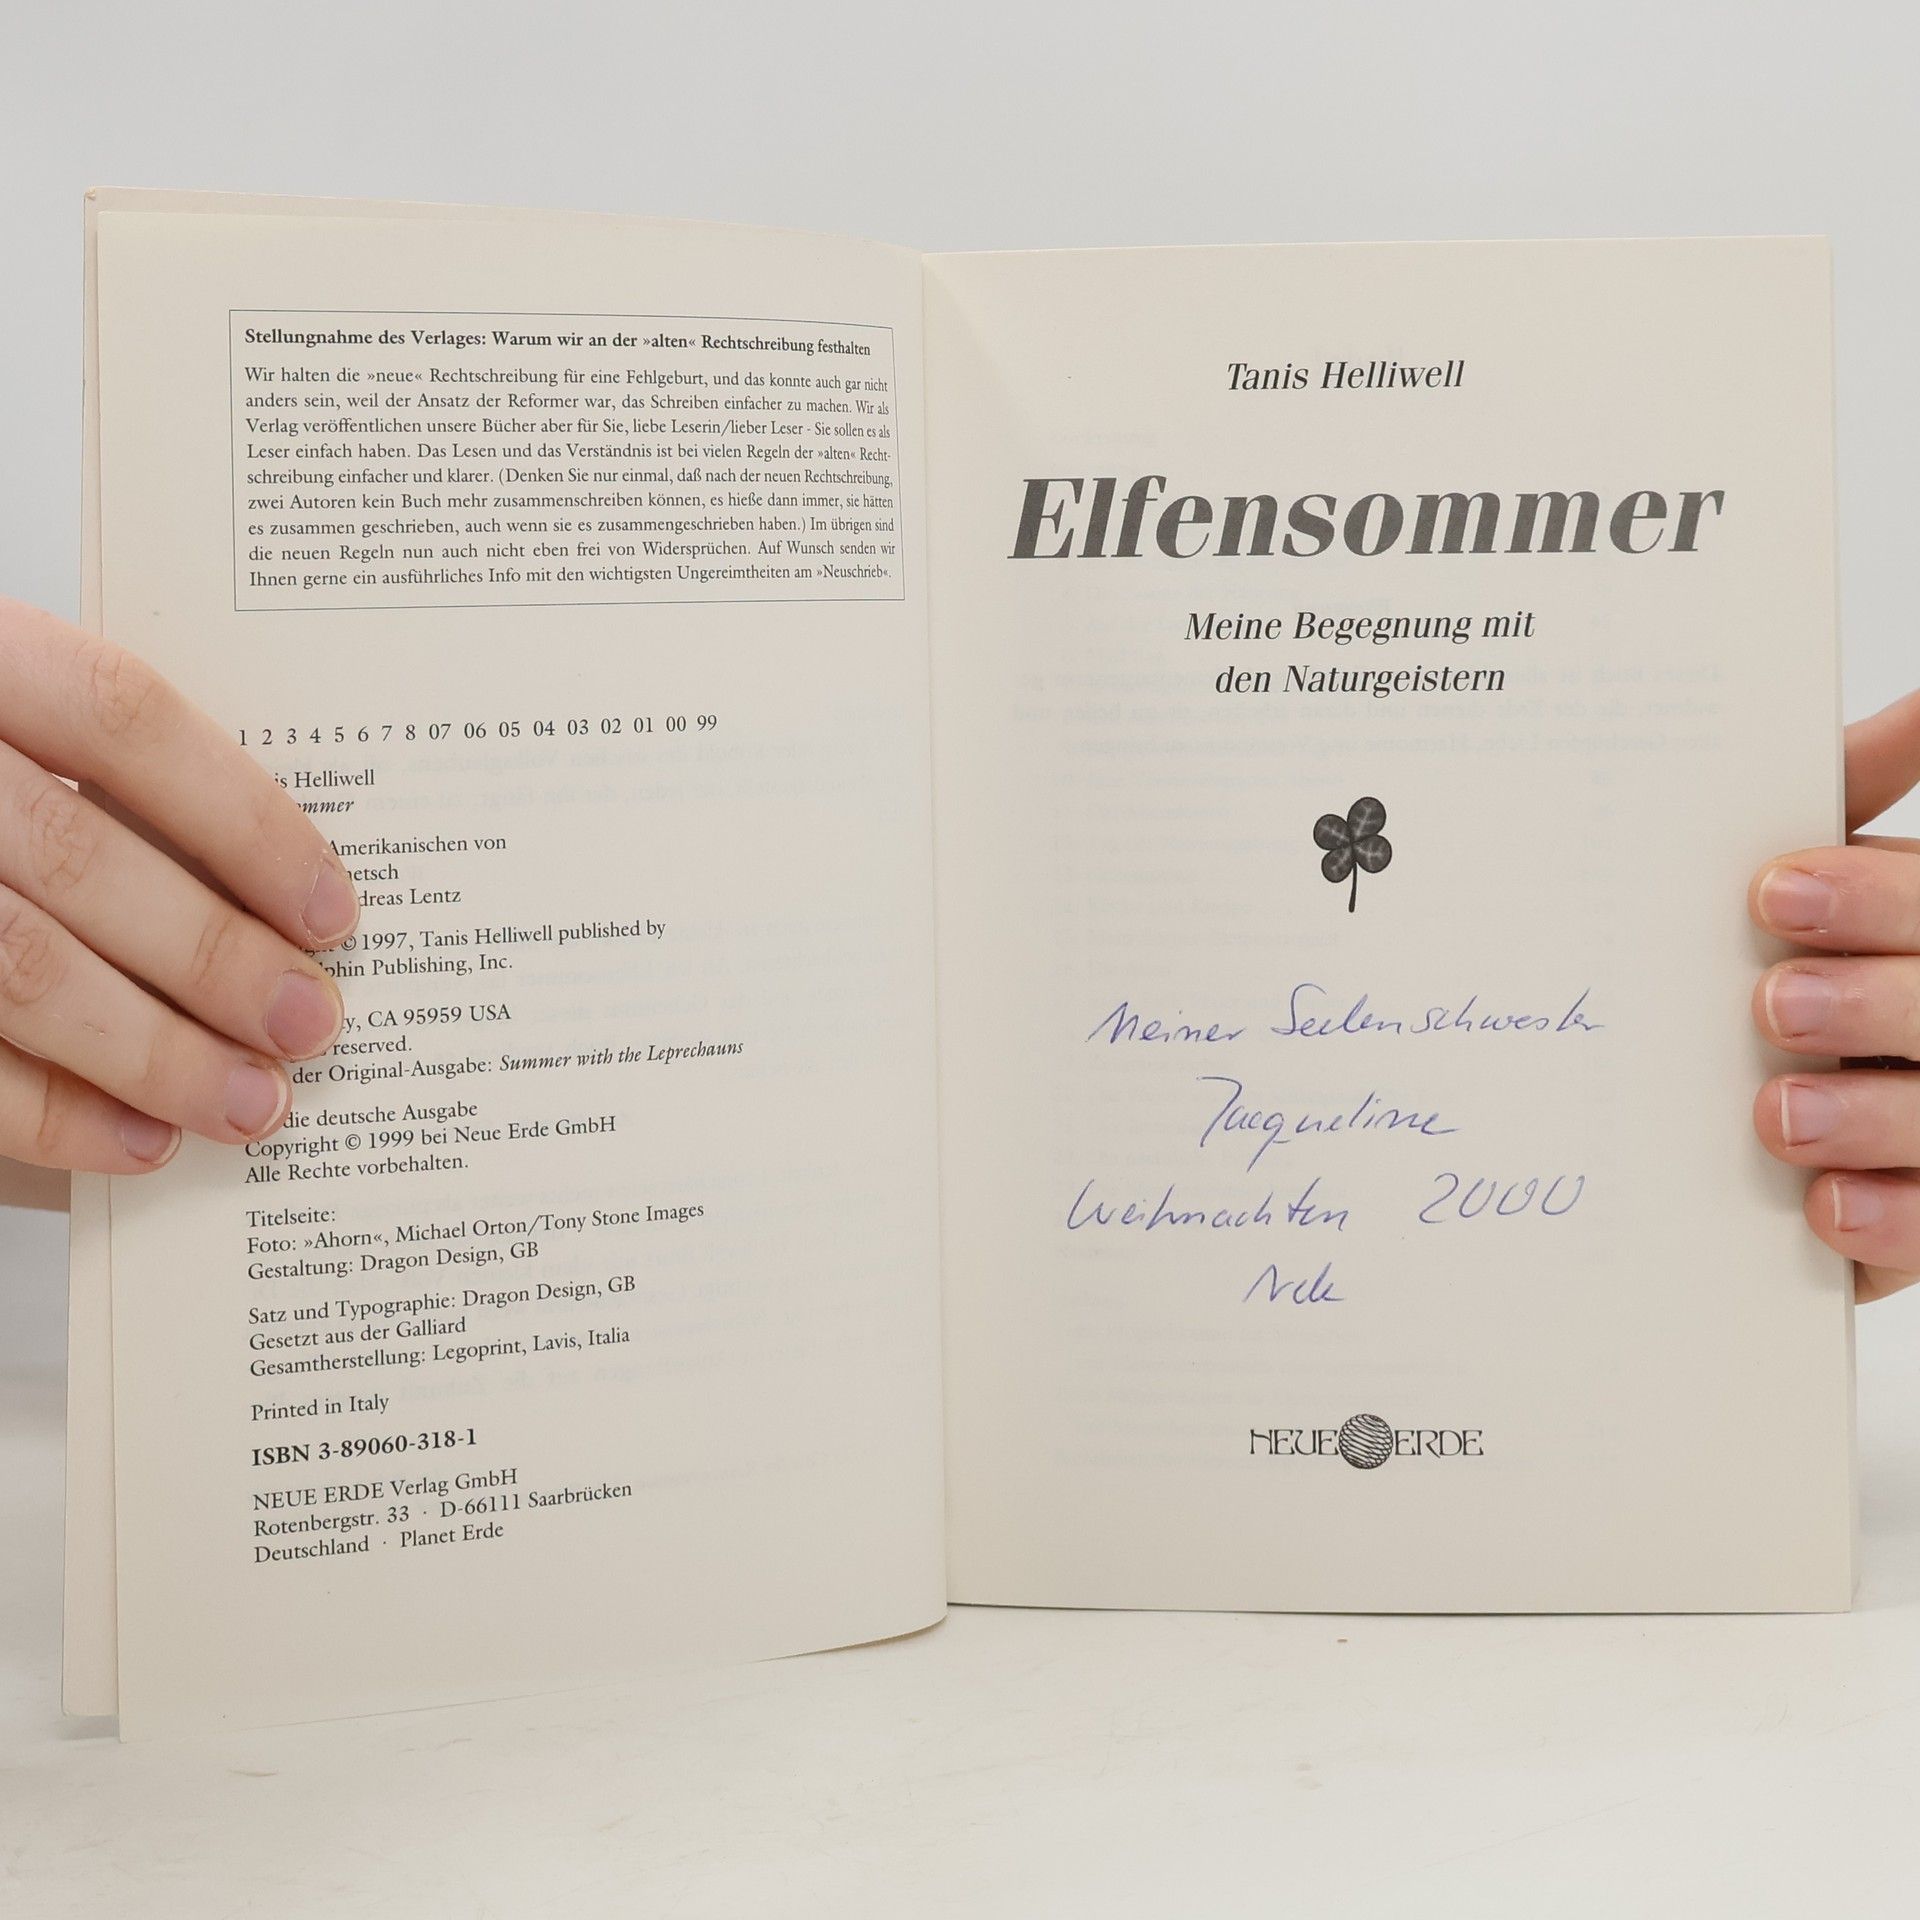 Stellungnahme des Verlages: Warum wir an der »alten« Rechtschreibung festhalten
Wir halten die »neue« Rechtschreibung für eine Fehlgeburt, und das konnte auch gar nicht
anders sein, weil der Ansatz der Reformer war, das Schreiben einfacher zu machen. Wir als
Verlag veröffentlichen unsere Bücher aber für Sie, liebe Leserin/lieber Leser - Sie sollen es als
Leser einfach haben. Das Lesen und das Verständnis ist bei vielen Regeln der »alten« Recht-
schreibung einfacher und klarer. (Denken Sie nur einmal, daß nach der neuen Rechtschreibung,
zwei Autoren kein Buch mehr zusammenschreiben können, es hieße dann immer, sie hätten
es zusammen geschrieben, auch wenn sie es zusammengeschrieben haben.) Im übrigen sind
die neuen Regeln nun auch nicht eben frei von Widersprüchen. Auf Wunsch senden wir
Ihnen gerne ein ausführliches Info mit den wichtigsten Ungereimtheiten am »Neuschrieb«.
1 2 3 4 5 6 7 8 07 06 05 04 03 02 01 00 99
is Helliwell
ommer
Amerikanischen von
netsch
dreas Lentz
©1997, Tanis Helliwell published by
phin Publishing, Inc.
ty, CA 95959 USA
reserved.
der Original-Ausgabe: Summer with the Leprechauns
die deutsche Ausgabe
Copyright © 1999 bei Neue Erde GmbH
Alle Rechte vorbehalten.
Titelseite:
Foto: »Ahorn«, Michael Orton/Tony Stone Images
Gestaltung: Dragon Design, GB
Satz und Typographie: Dragon Design, GB
Gesetzt aus der Galliard
Gesamtherstellung: Legoprint, Lavis, Italia
Printed in Italy
ISBN 3-89060-318-1
NEUE ERDE Verlag GmbH
Rotenbergstr. 33 · D-66111 Saarbrücken
Deutschland · Planet Erde
Tanis Helliwell
Elfensommer
Meine Begegnung mit
den Naturgeistern
Meiner Seelenschwester
Jacqueline
Weihnachten 2000
NEUE ERDE